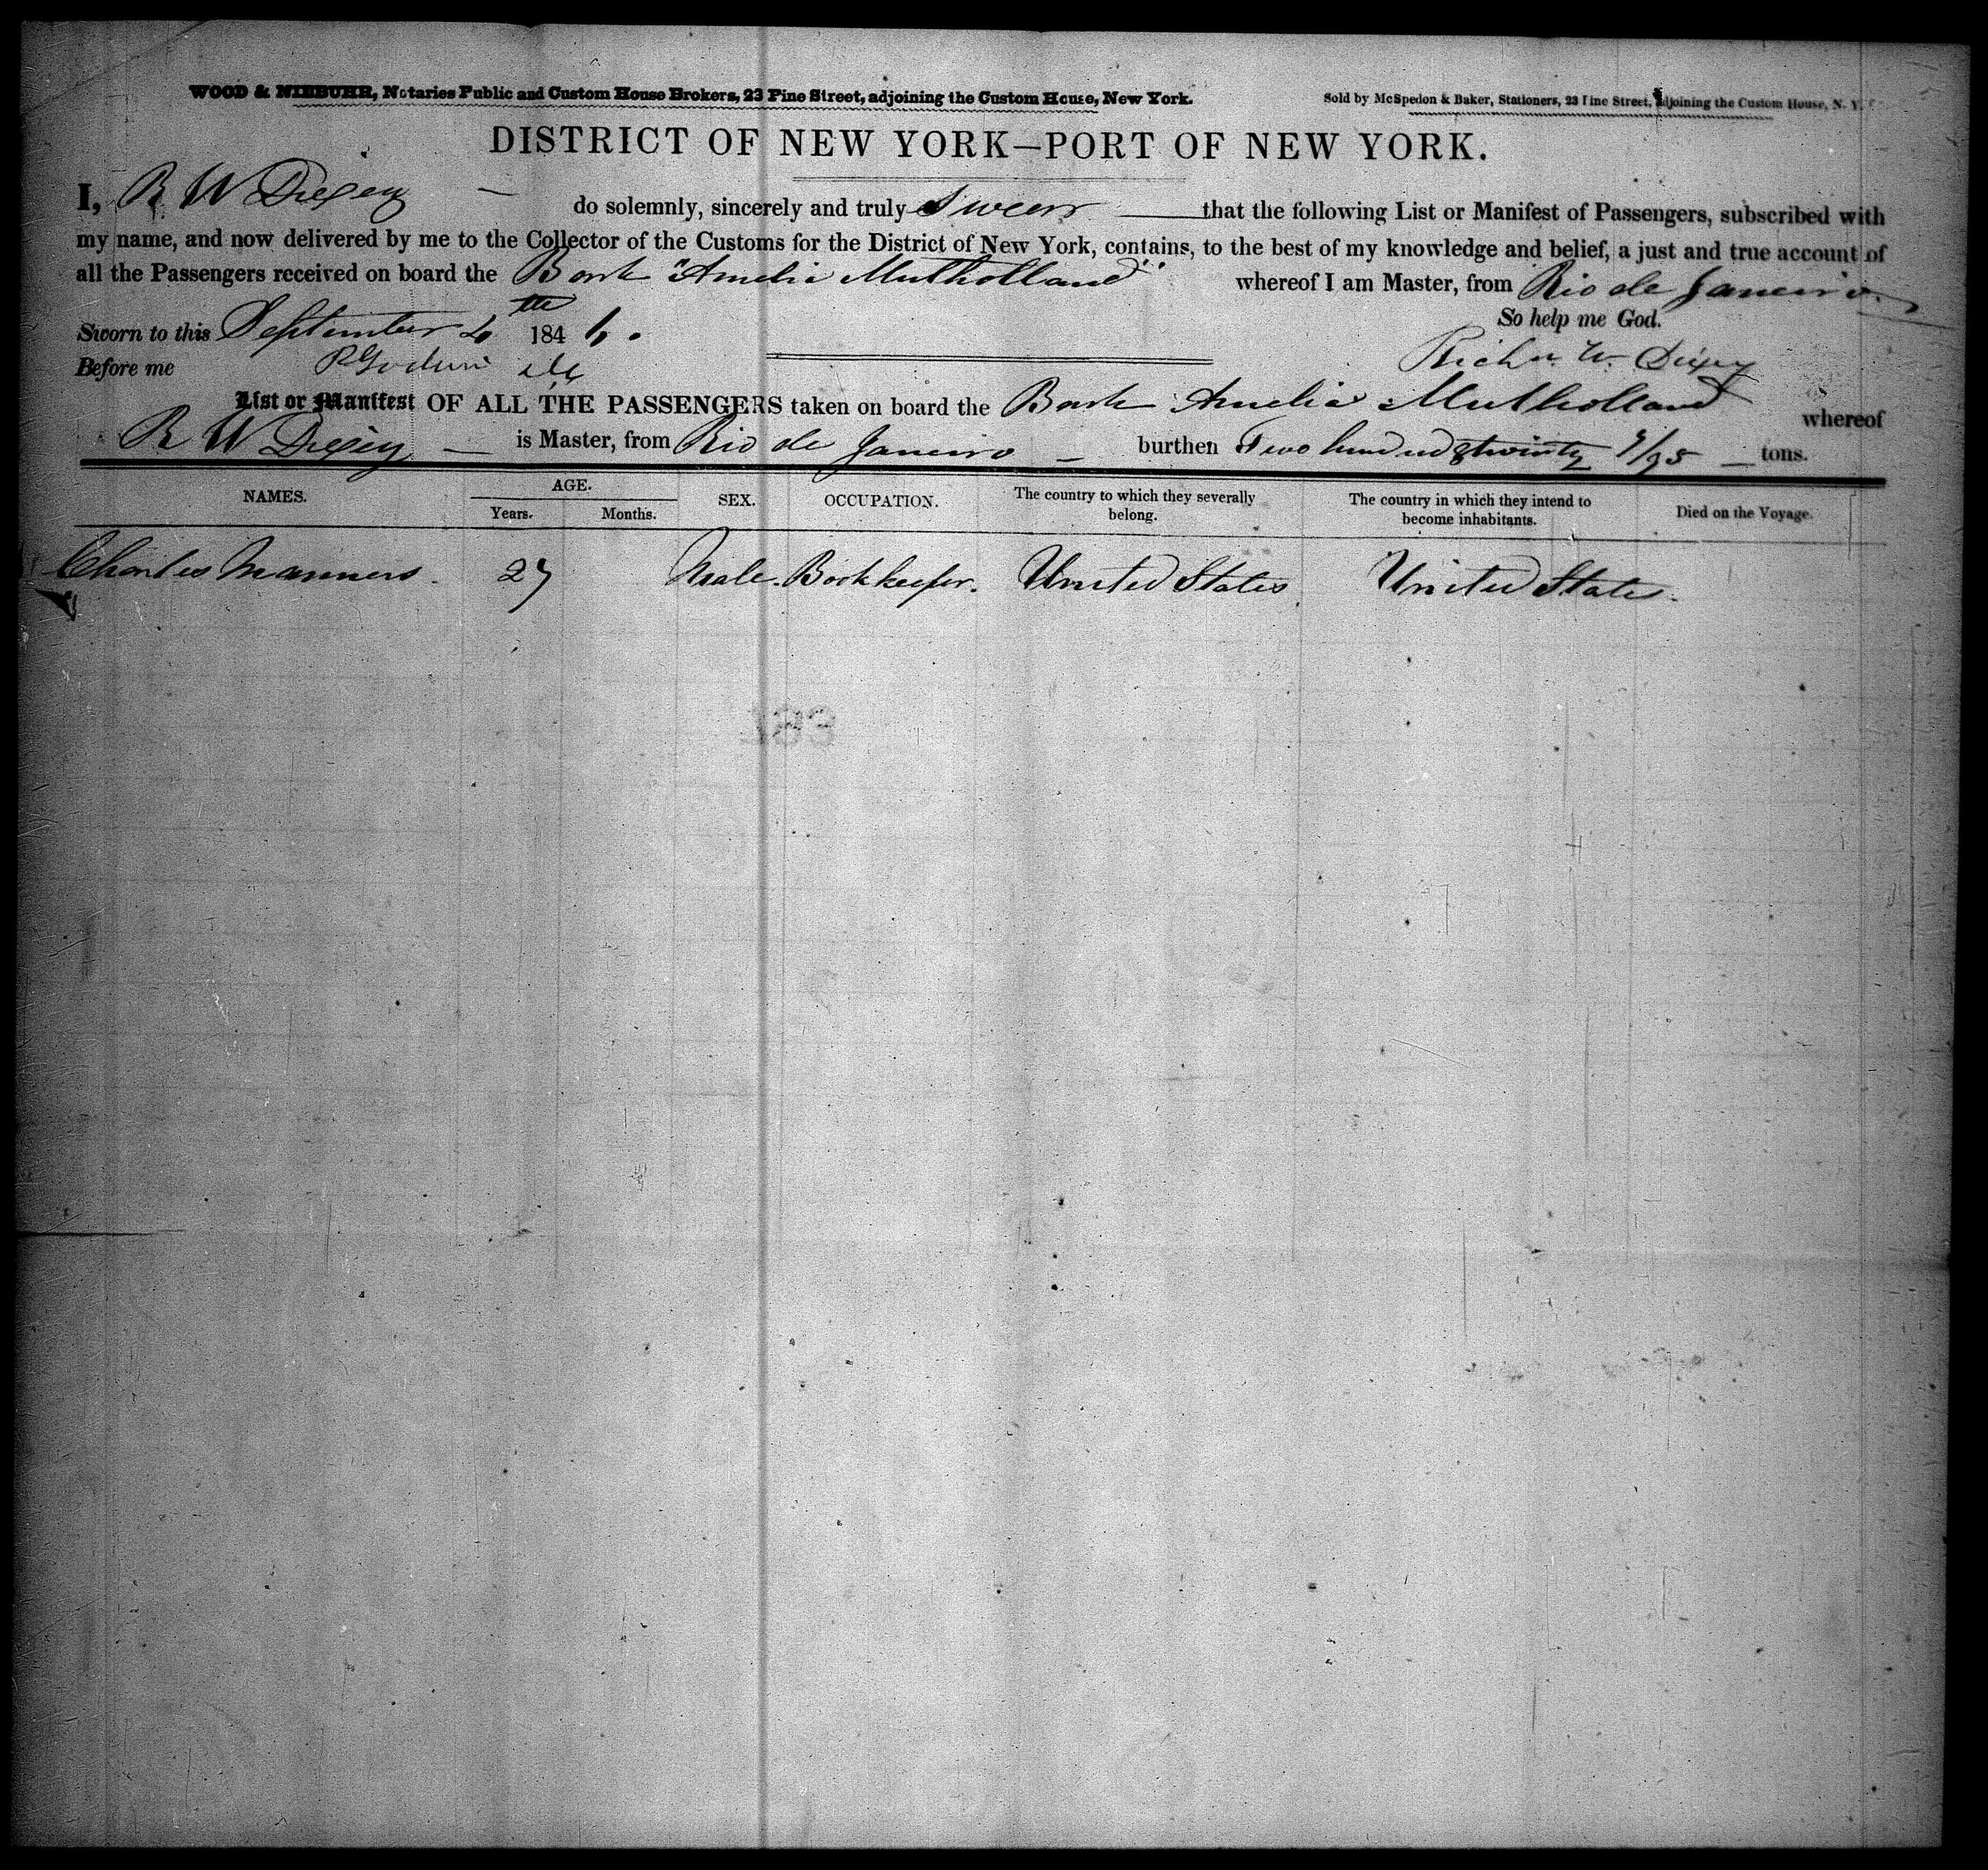 WOOD & NIEBUHR, Notaries Public and Custom House Brokers, 23 Pine Street, adjoining the Custom House, New York.
Sold by McSpedon & Baker, Stationers, 23 Pine Street, adjoining the Custom House, N. Y.
DISTRICT OF NEW YORK—PORT OF NEW YORK.
I, R W Dixey do solemnly, sincerely and truly Swear that the following List or Manifest of Passengers, subscribed with
my name, and now delivered by me to the Collector of the Customs for the District of New York, contains, to the best of my knowledge and belief, a just and true account of
all the Passengers received on board the Bark "Amelia Mulholland" whereof I am Master, from Rio de Janeiro.
So help me God.
Sworn to this September 4th 1846.
Before me Richd. W. Dixey
List or Manifest OF ALL THE PASSENGERS taken on board the Bark Amelia Mulholland whereof
R W Dixey is Master, from Rio de Janeiro burthen Two hundred & twenty /95 tons.
NAMES. AGE. SEX. OCCUPATION. The country to which they severally belong. The country in which they intend to become inhabitants. Died on the Voyage.
Years. Months.
Charles Manners. 27 Male. Bookkeeper. United States United States.